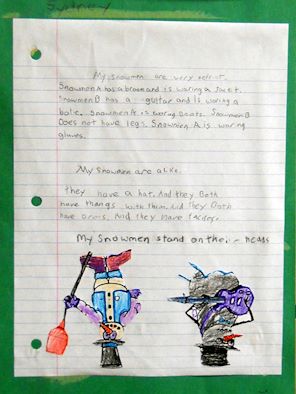 Sydney
My Snowmen are very difrint.
Snowmen A has a broom and is waring a Jacket.
Snowmen B has a guitar and is waring a
botie. Snowmen A is waring boots. Snowmen B
Does not have legs. Snowmen A is waring
gloves.
My Snowmen are alke.
they have a hat. And they Both
have things with them. And they Both
have arms. And they have faces.
My Snowmen stand on their heads